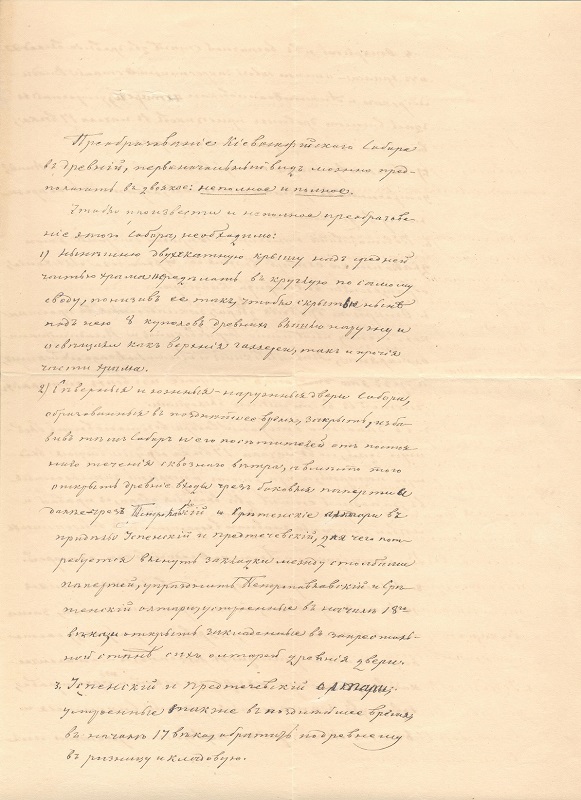 Преобразованіе Кіевософійскаго Собора
въ древній, первоначальный видъ можно пред-
полагать въ двоякое: неполное и полное.
Чтобы произвести и неполное преобразова-
ніе этого Собора, необходимо:
1) Нынѣшнюю двухскатную крышу надъ средней
частью храма передѣлать въ круглую по самому
своду, понизивъ ее такъ, чтобы скрытые нынѣ
подъ нею 8 куполовъ древнихъ вышли наружу и
освѣщали какъ верхнія галлереи, такъ и прочія
части храма.
2) Сѣверныя и южныя наружныя двери Собора,
образованныя въ позднѣйшее время, закрыть, изба-
вивъ тѣмъ Соборъ и его посѣтителей отъ постоя-
ннаго теченія сквознаго вѣтра, а вмѣсто того
открыть древніе входы чрезъ боковыя паперти и
далѣе чрезъ Петропавловскій и Срѣтенскіе алтари въ
придѣлы Успенскій и Предтечевскій, для чего пот-
ребуется вынуть закладки между столбами
папертей, упразднить Петропавловскій и Срѣ-
тенскій алтари, устроенные въ началѣ 18го
вѣка, и открыть закладенные въ запрестоль-
ной стѣнѣ сихъ олтарей древнія двери.
3. Успенскій и Предтечевскій алтари,
устроенные также въ позднѣйшее время,
въ началѣ 17 вѣка, обратить подревнему
въ ризницу и кладовую.